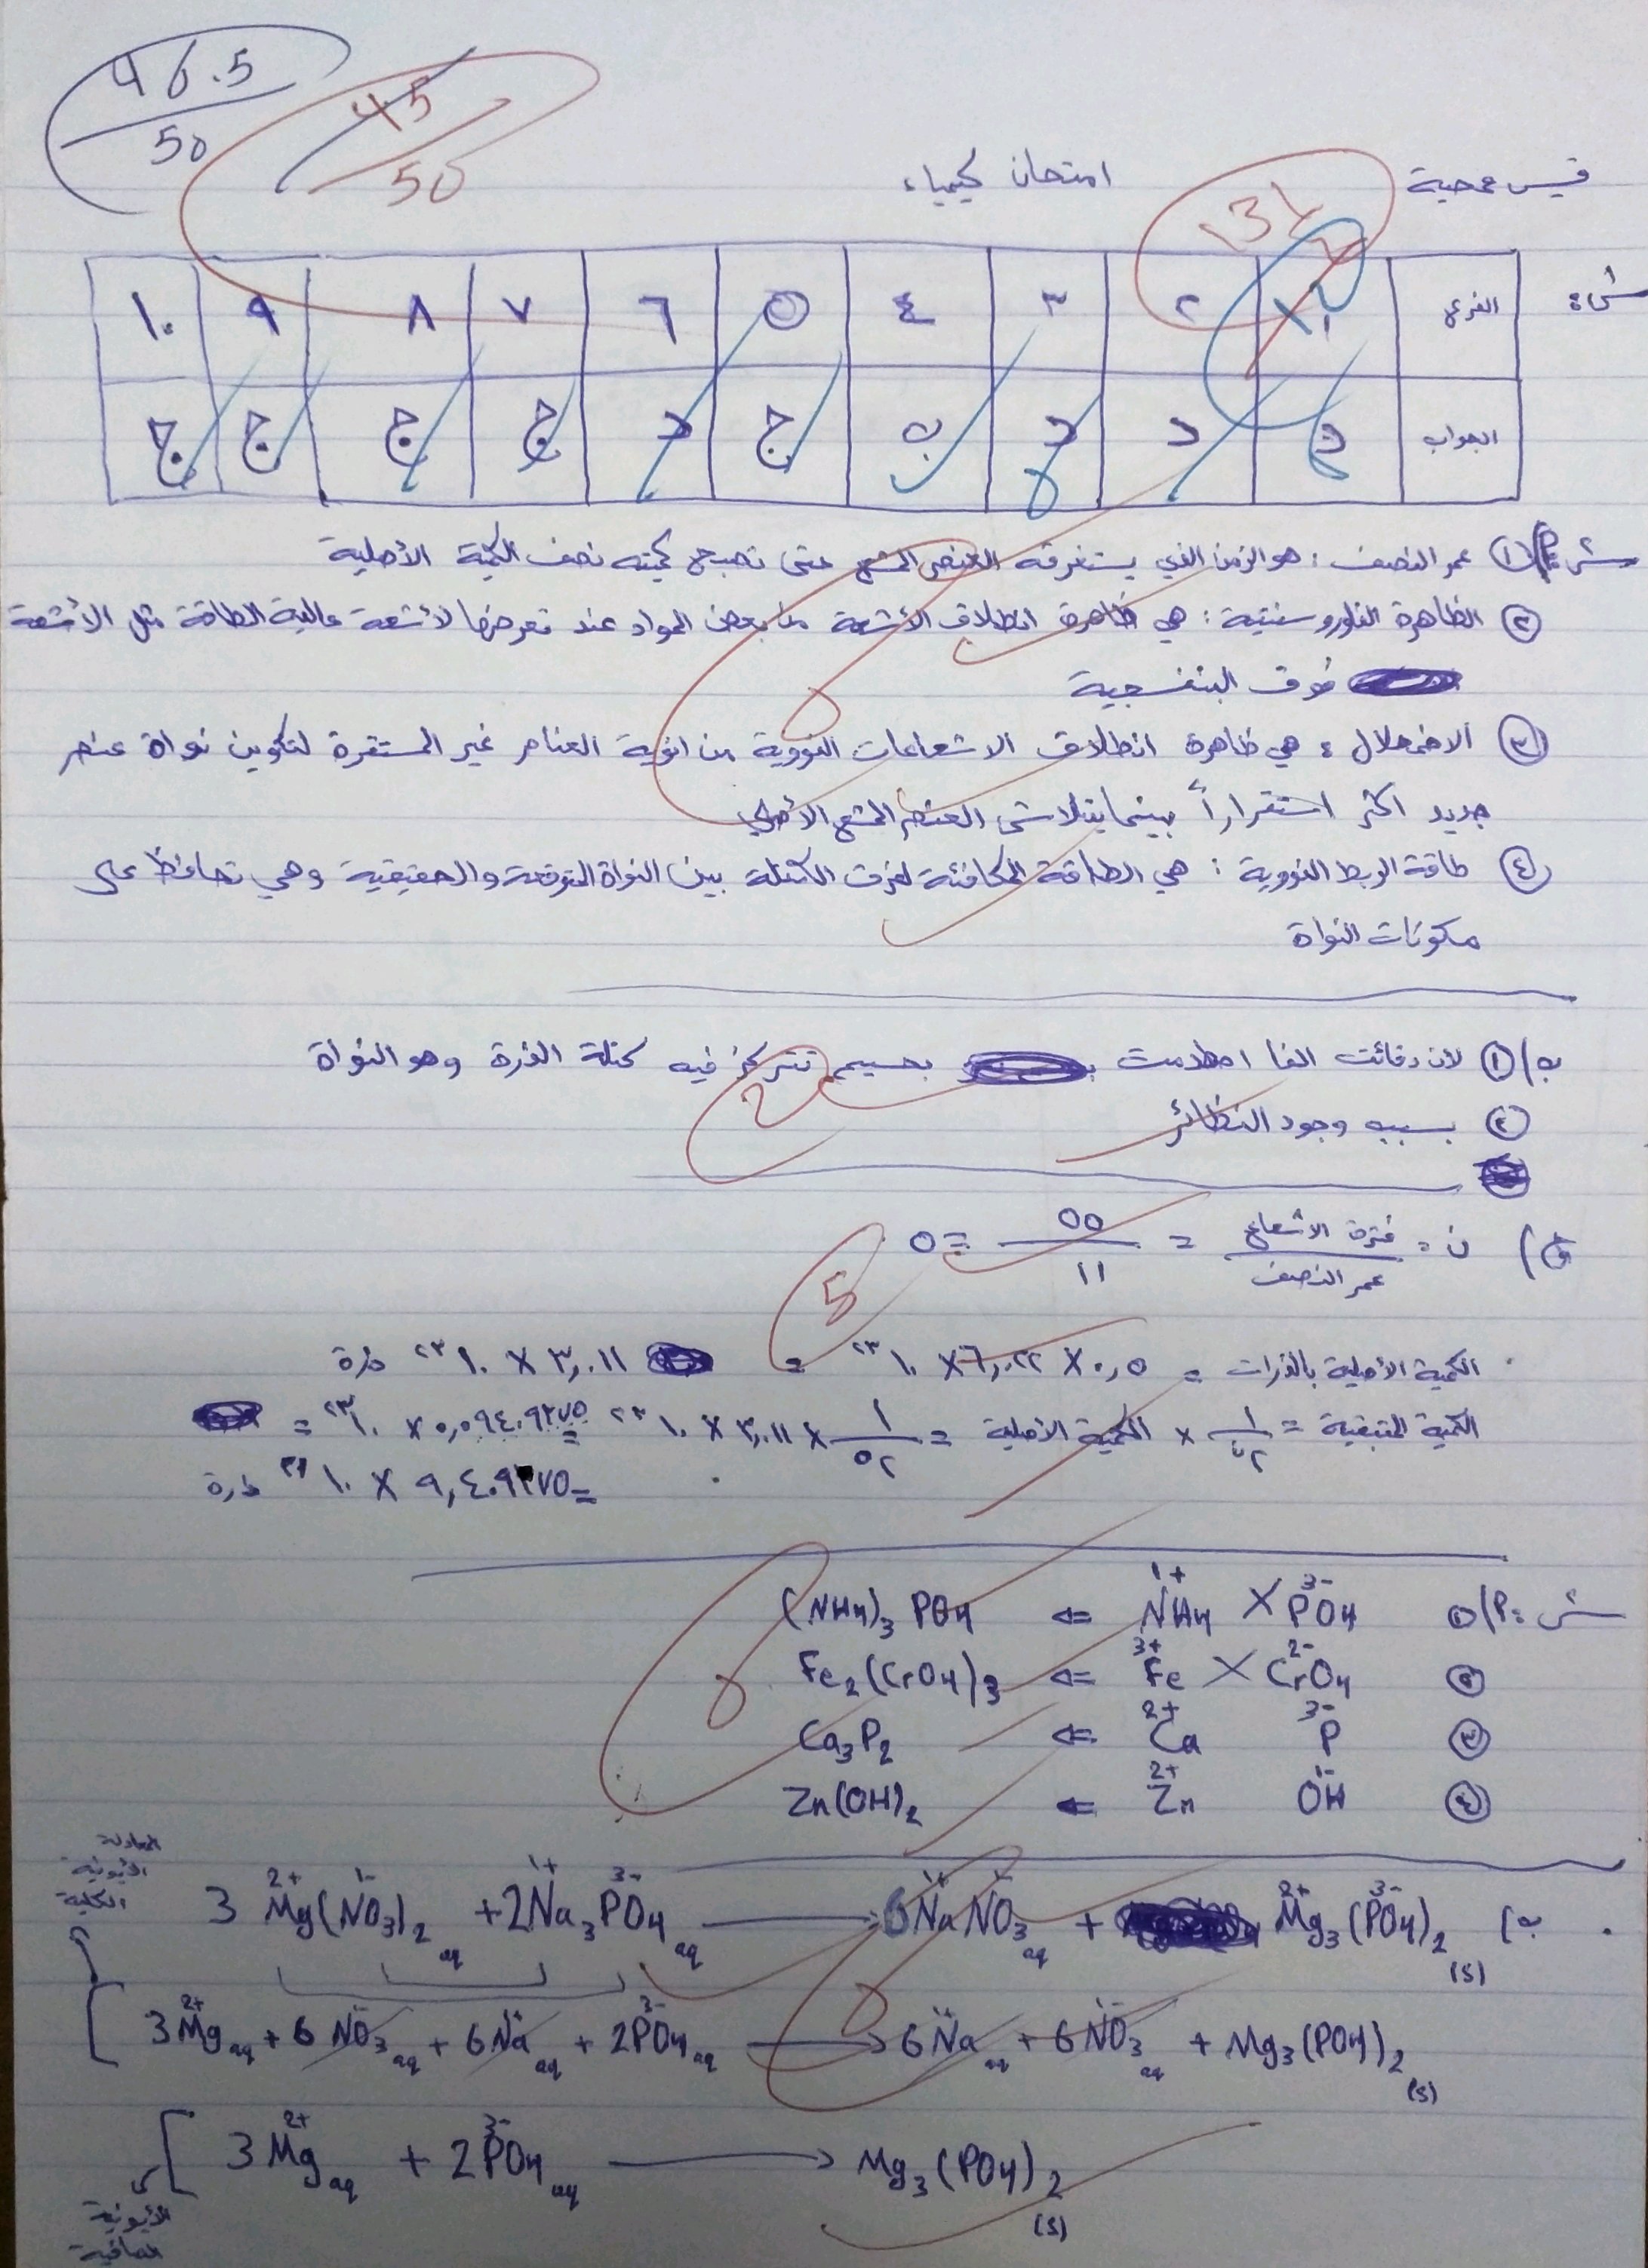 46.5
50
45
50
قيس محمية
امتحان كيمياء
س١:
الفرع ١ ٢ ٣ ٤ ٥ ٦ ٧ ٨ ٩ ١٠
الجواب د د د ب ج د ج ج ج ج
س٢: أ) ① عمر النصف : هو الزمن الذي يستغرقه العنصر المشع حتى تصبح كميته نصف الكمية الأصلية
② الظاهرة الفلوروسنتية : هي ظاهرة انطلاق الأشعة من بعض المواد عند تعرضها لأشعة عالية الطاقة مثل الأشعة
فوق البنفسجية
③ الاضمحلال : هي ظاهرة انطلاق الاشعاعات النووية من انوية العناصر غير المستقرة لتكوين نواة عنصر
جديد اكثر استقراراً بينما يتلاشى العنصر المشع الأصلي
④ طاقة الربط النووية : هي الطاقة المكافئة لفرق الكتلة بين النواة المتوقعة والحقيقية وهي تحافظ على
مكونات النواة
ب) ① لان دقائق الفا اصطدمت بجسيم تتركز فيه كتلة الذرة وهو النواة
2
② بسبب وجود النظائر
ج) ن = فترة الاشعاع / عمر النصف = ٥٥ / ١١ = ٥
5
الكمية الأصلية بالذرات = ٠,٥ × ٦,٠٢٢ × ١٠^٢٣ = ٣,٠١١ × ١٠^٢٣ ذرة
الكمية المتبقية = ١/٢^ن × الكمية الأصلية = ١/٢^٥ × ٣,٠١١ × ١٠^٢٣ = ٠,٠٩٤٠٩٣٧٥ × ١٠^٢٣ =
= ٩,٤٠٩٣٧٥ × ١٠^٢١ ذرة
س٣: أ) ① PO4^3- × NH4^1+ ⇐ (NH4)3 PO4
② CrO4^2- × Fe^3+ ⇐ Fe2(CrO4)3
③ P^3- Ca^2+ ⇐ Ca3P2
④ OH^1- Zn^2+ ⇐ Zn(OH)2
ب) 3 Mg^2+(NO3^1-)2 aq + 2Na^1+3 PO4^3- aq → 6Na^1+NO3^- aq + Mg^2+3(PO4^3-)2 (s)
المعادلة
الأيونية
الكلية
3Mg^2+ aq + 6 NO3^1- aq + 6Na^1+ aq + 2PO4^3- aq → 6Na^1+ aq + 6NO3^1- aq + Mg3(PO4)2 (s)
3Mg^2+ aq + 2PO4^3- aq → Mg3(PO4)2 (s)
الأيونية
الصافية